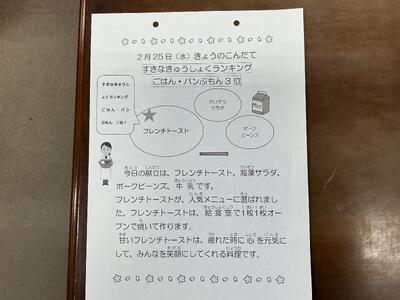 2月25日（水）きょうのこんだて
すきなきゅうしょくランキング
ごはん・パンぶもん3位
すきなきゅうしょ
くランキング
ごはん・パン
ぶもん 3位！
フレンチトースト
かいそう
サラダ
MILK
ポーク
ビーンズ
今日の献立は、フレンチトースト、海藻サラダ、
ポークビーンズ、牛乳です。
フレンチトーストが、人気メニューに選ばれまし
た。フレンチトーストは、給食室で1枚1枚オー
ブンで焼いて作ります。
甘いフレンチトーストは、疲れた時に心を元気に
して、みんなを笑顔にしてくれる料理です。